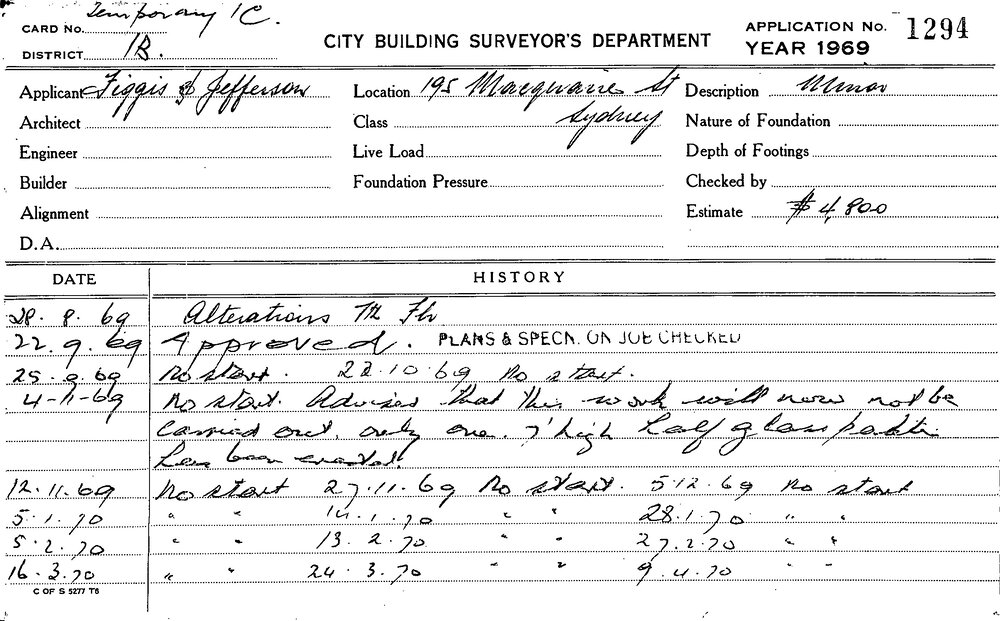 CARD No. Temporary 1C.
DISTRICT 1B.
CITY BUILDING SURVEYOR'S DEPARTMENT
APPLICATION No. 1294
YEAR 1969
Applicant Figgis & Jefferson Location 195 Macquarie St Description Minor
Architect Class Sydney Nature of Foundation
Engineer Live Load Depth of Footings
Builder Foundation Pressure Checked by
Alignment Estimate $4,800
D.A.
DATE HISTORY
28. 8. 69 Alterations 7th Flr
22. 9. 69 Approved. PLANS & SPECN. ON JOB CHECKED
25. 9. 69 No start. 22.10.69 No start.
4-11-69 No start. Advises that this work will now not be
carried out, only one. 7' high half glass
has been erected.
12.11.69 No start 27.11.69 No start. 5.12.69 No start
5.1.70 " " 14.1.70 " " 28.1.70 " "
5.2.70 " " 13.2.70 " " 27.2.70 " "
16.3.70 " " 24.3.70 " " 9.4.70 " "
C OF S 5277 T6